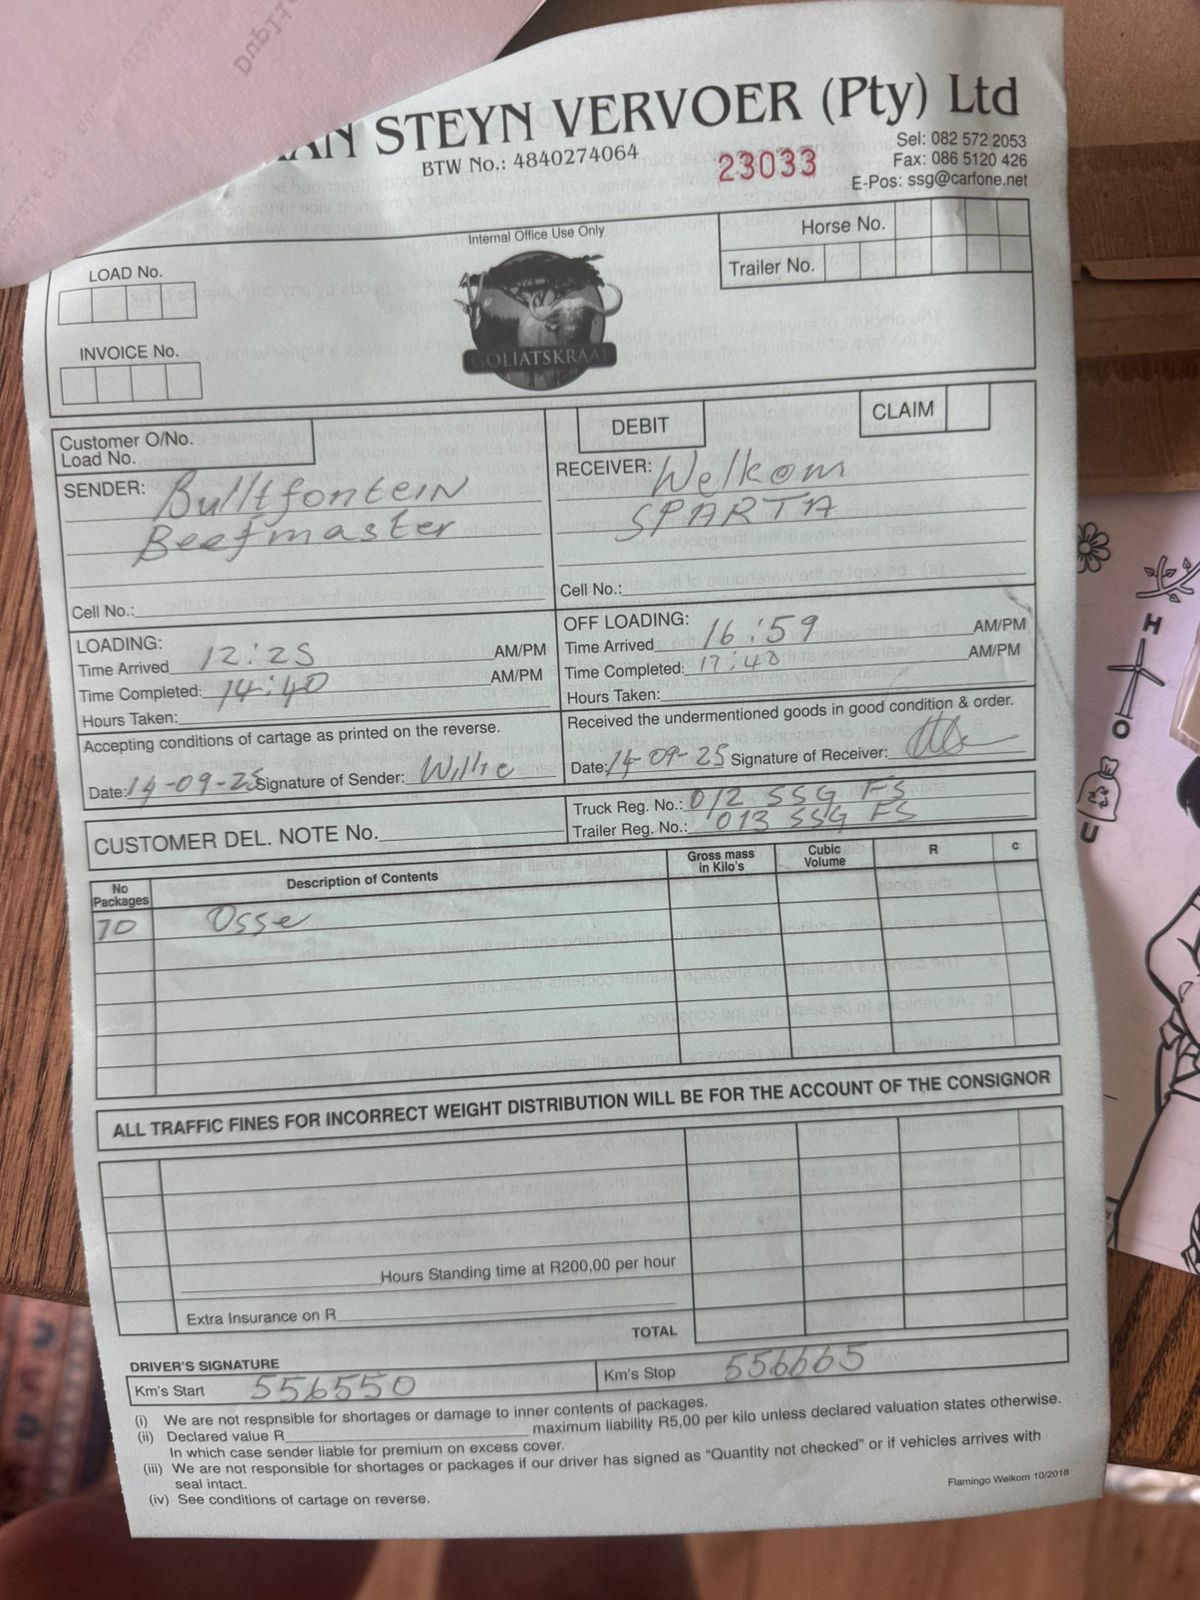 AN STEYN VERVOER (Pty) Ltd
BTW No.: 4840274064
23033
Sel: 082 572 2053
Fax: 086 5120 426
E-Pos: ssg@carfone.net
Internal Office Use Only
Horse No.
Trailer No.
LOAD No.
INVOICE No.
GOLIATSKRAAL
Customer O/No.
Load No.
DEBIT
CLAIM
SENDER: Bulltfontein
Beefmaster
Cell No.:
RECEIVER: Welkom
SPARTA
Cell No.:
LOADING:
Time Arrived 12:25 AM/PM
Time Completed: 14:40 AM/PM
Hours Taken:
OFF LOADING:
Time Arrived 16:59 AM/PM
Time Completed: 17:43 AM/PM
Hours Taken:
Accepting conditions of cartage as printed on the reverse.
Date: 14-09-25 Signature of Sender: Willie
Received the undermentioned goods in good condition & order.
Date: 14-09-25 Signature of Receiver:
CUSTOMER DEL. NOTE No.
Truck Reg. No.: 012 SSG FS
Trailer Reg. No.: 013 SSG FS
No Packages Description of Contents Gross mass in Kilo's Cubic Volume R c
70 Osse
ALL TRAFFIC FINES FOR INCORRECT WEIGHT DISTRIBUTION WILL BE FOR THE ACCOUNT OF THE CONSIGNOR
Hours Standing time at R200,00 per hour
Extra Insurance on R
TOTAL
DRIVER'S SIGNATURE
Km's Start 556550
Km's Stop 556665
(i) We are not respnsible for shortages or damage to inner contents of packages.
(ii) Declared value R maximum liability R5,00 per kilo unless declared valuation states otherwise.
In which case sender liable for premium on excess cover.
(iii) We are not responsible for shortages or packages if our driver has signed as "Quantity not checked" or if vehicles arrives with
seal intact.
(iv) See conditions of cartage on reverse.
Flamingo Welkom 10/2018
H
O
U